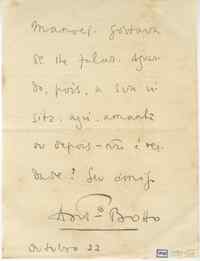 Manoel. Gostava
de lhe falar. Aguar-
do, pois, a sua vi-
sita, aqui, amanhã
ou depois – não é ver-
dade? Seu amigo
Antº Botto
Outubro 22